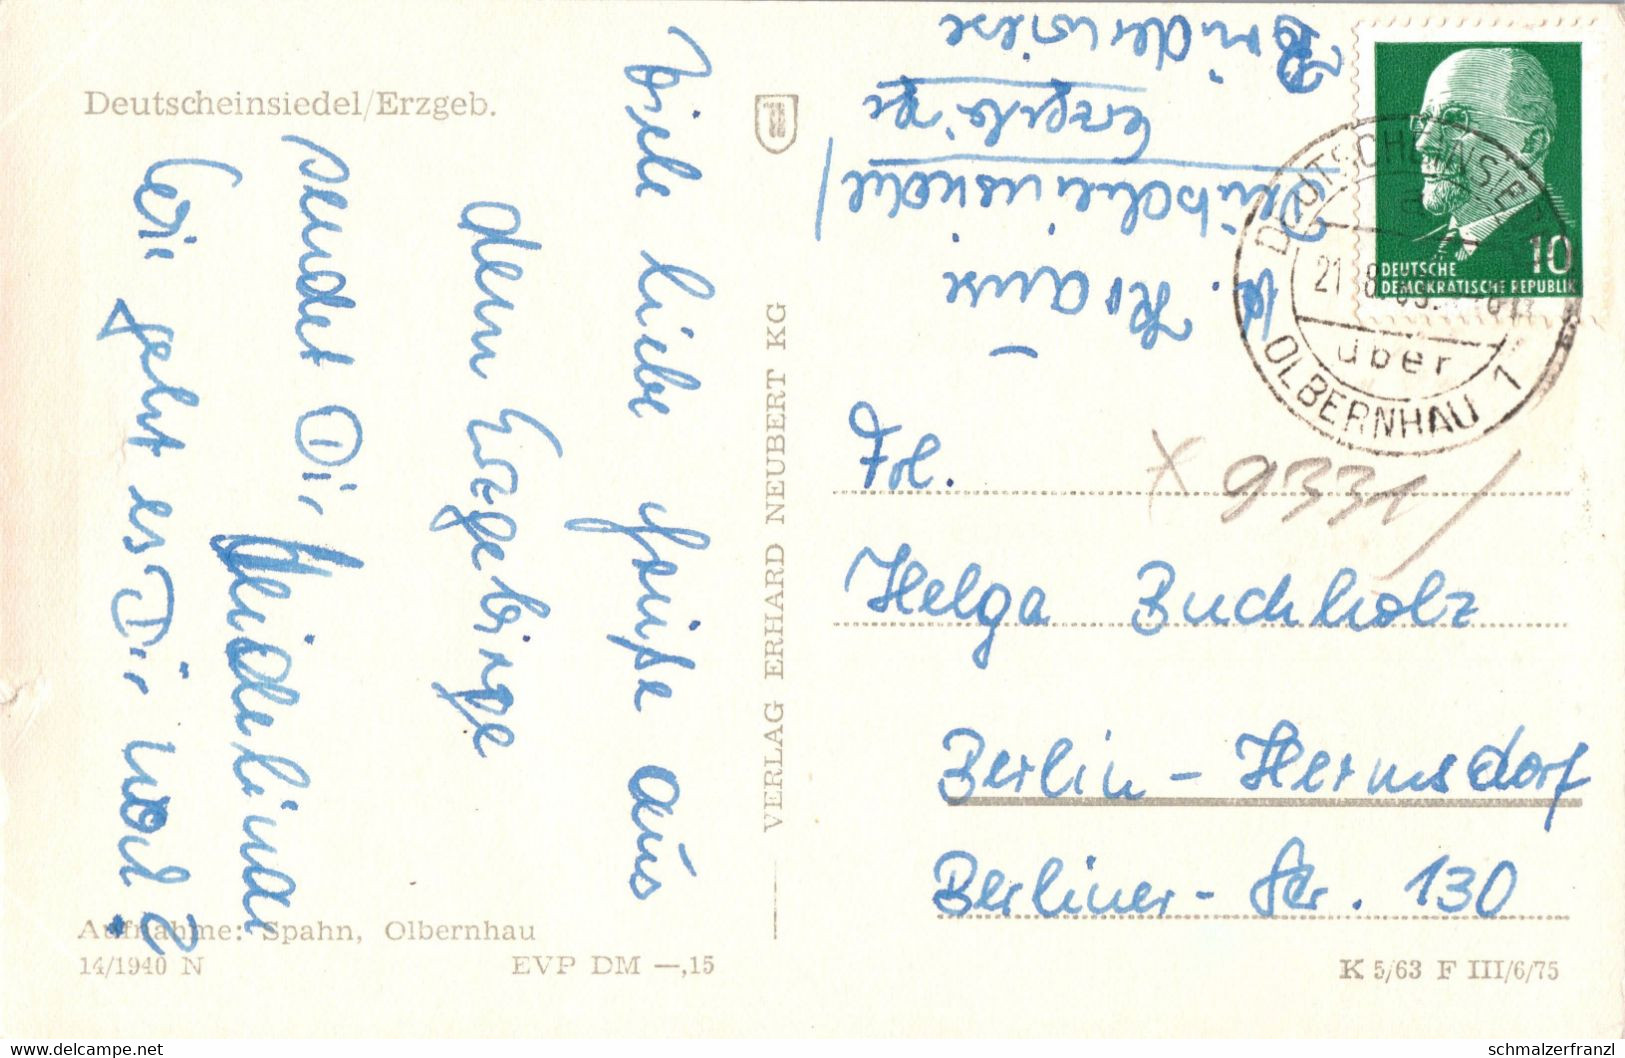 Deutscheinsiedel/Erzgeb.
Viele liebe Grüße aus
dem Erzgebirge
sendet Dir
Heidelinde
Wie geht es Dir noch?
Aufnahme: Spahn, Olbernhau
14/1940 N
EVP DM —,15
VERLAG ERHARD NEUBERT KG
Krause
Deutscheinsiedel/
Erzgebirge
Brüderwiese
10
DEUTSCHE
DEMOKRATISCHE REPUBLIK
DEUTSCHEINSIEDEL
über
OLBERNHAU 1
x 9331/
Frl.
Helga Buchholz
Berlin-Hermsdorf
Berliner-Str. 130
K 5/63 F III/6/75
www.delcampe.net
schmalzerfranzl